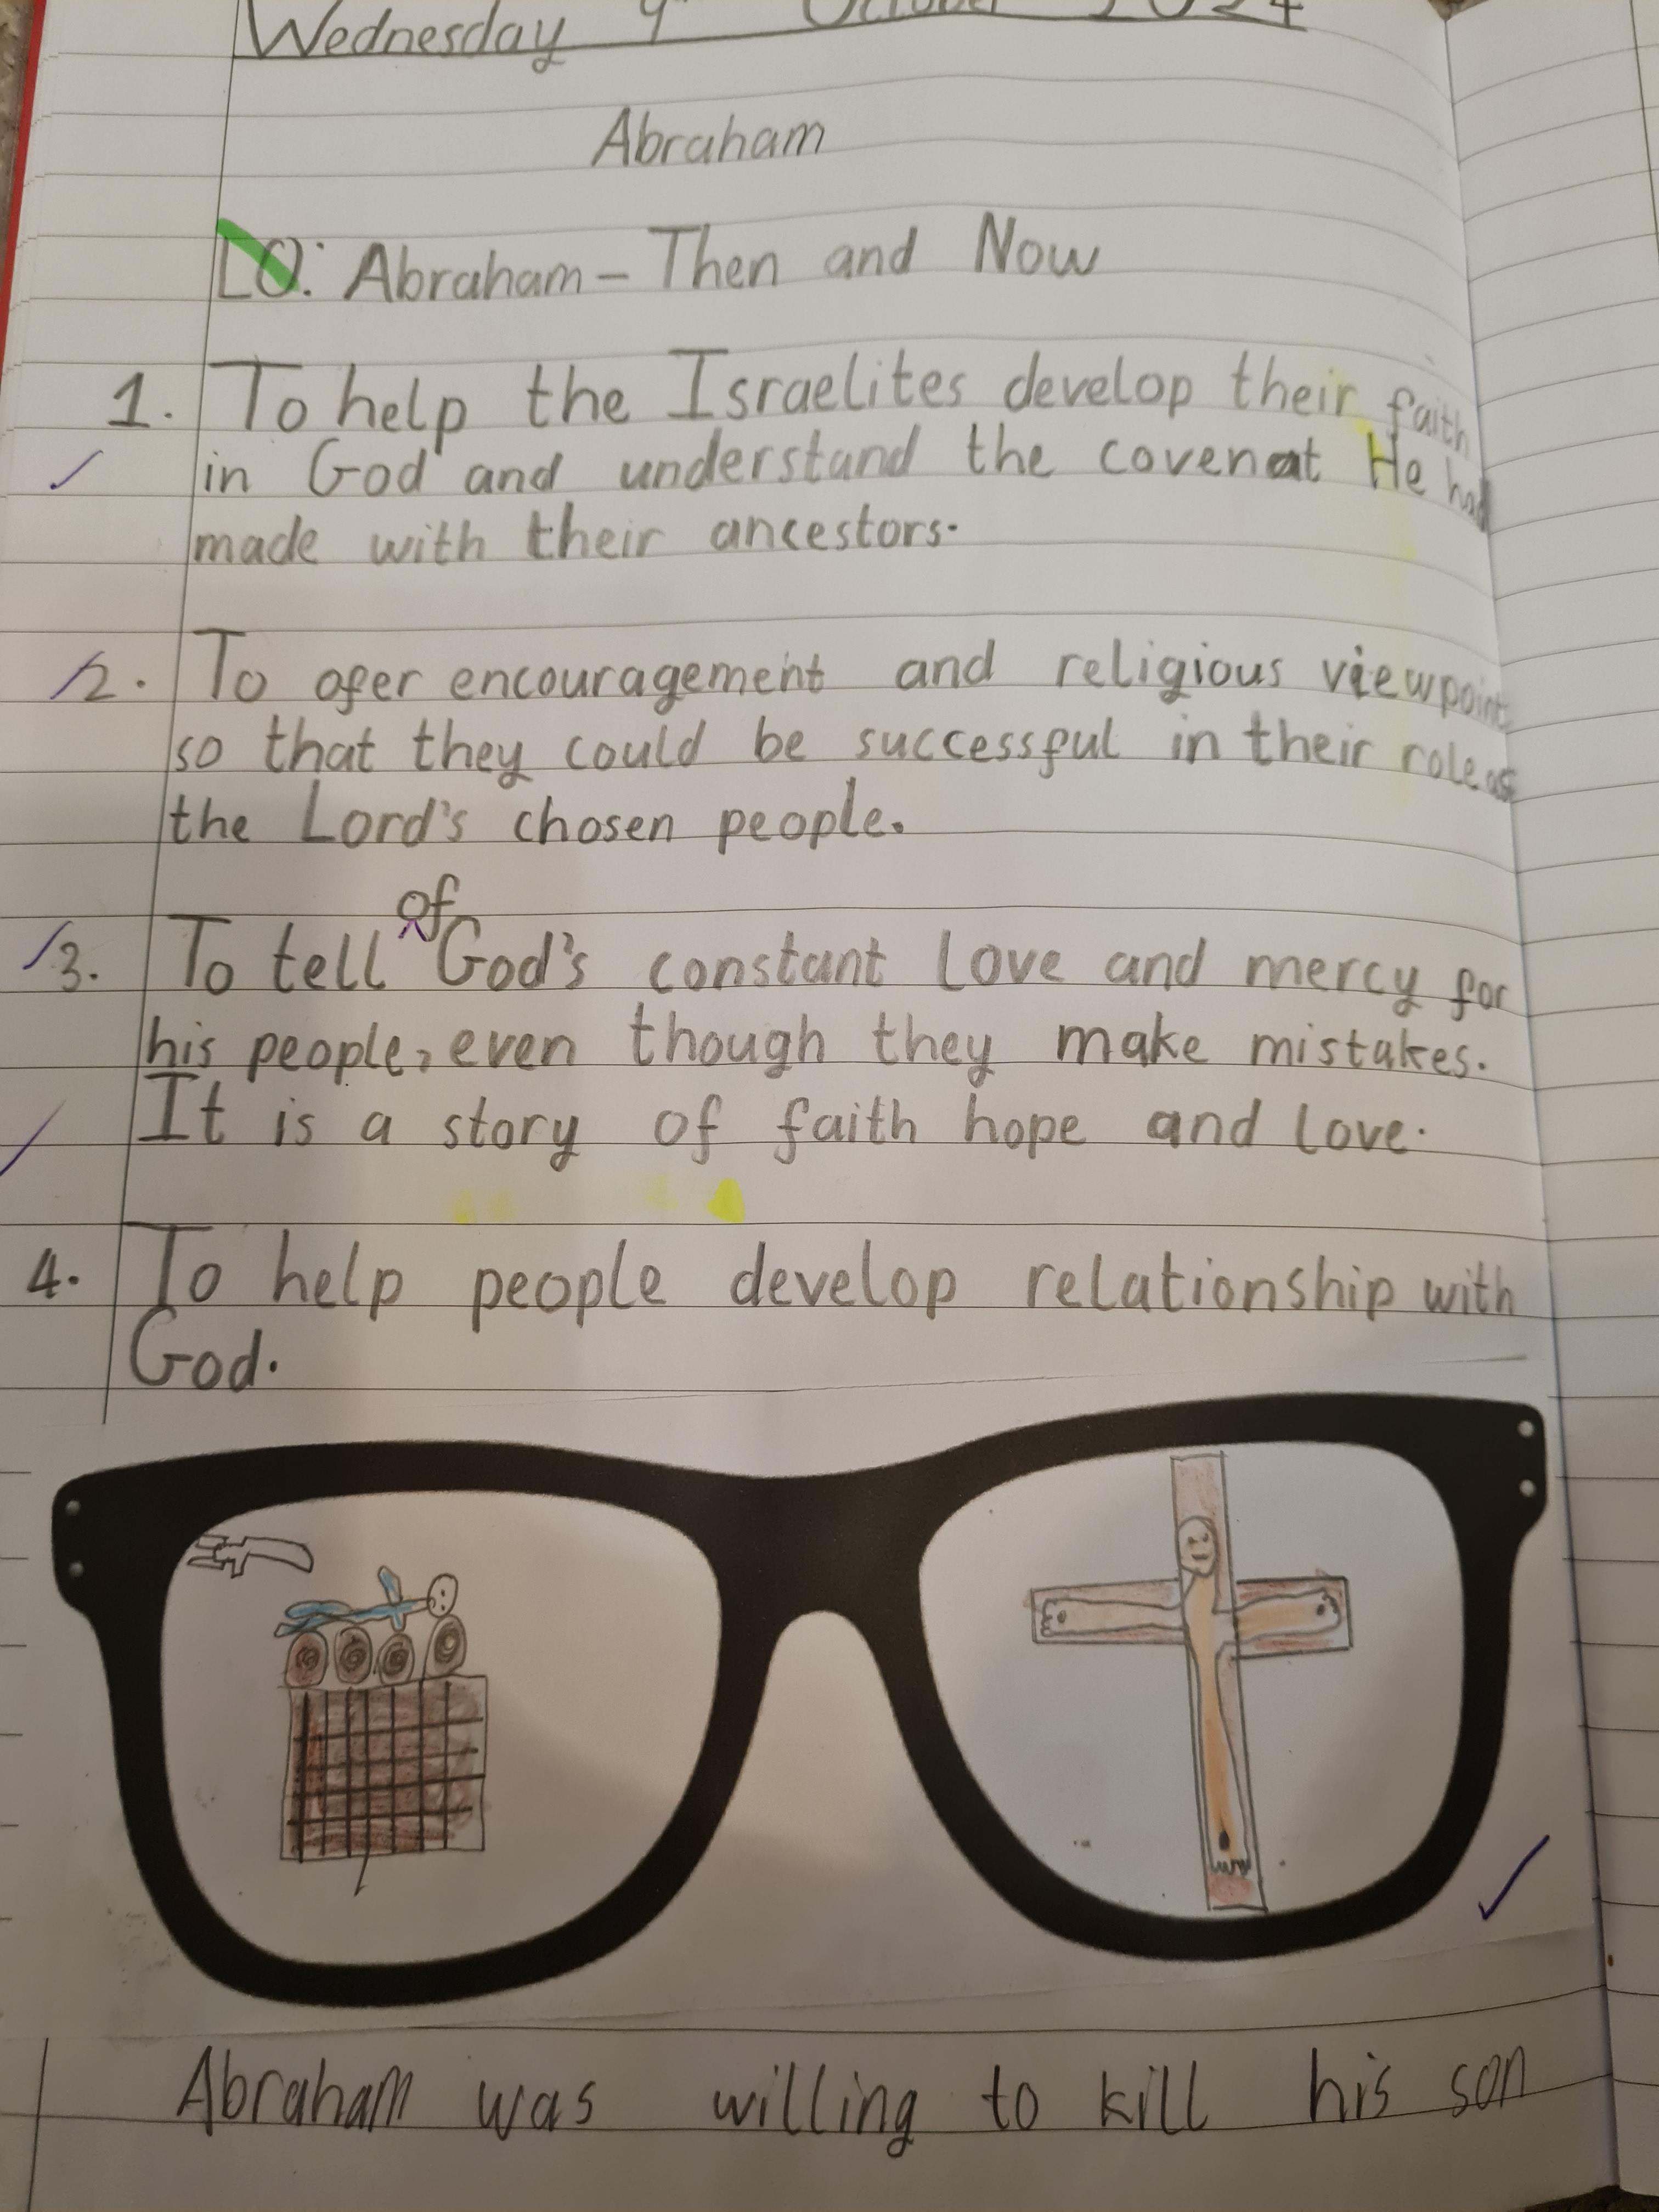 Wednesday 9th October 2024
Abraham
LO: Abraham - Then and Now
1. To help the Israelites develop their faith
in God and understand the covenat He had
made with their ancestors.
2. To ofer encouragement and religious viewpoint
so that they could be successful in their role as
the Lord's chosen people.
of
3. To tell God's constant love and mercy for
his people, even though they make mistakes.
It is a story of faith hope and love.
4. To help people develop relationship with
God.
Abraham was willing to kill his son